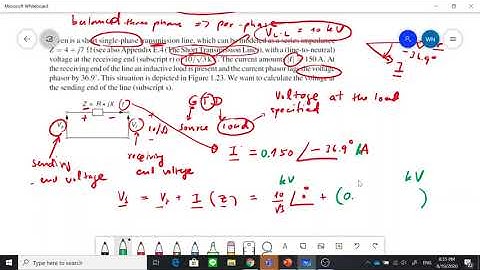 Microsoft Whiteboard
WN
balanced three phase => per-phase
V_L-L = 10 kV
Given is a short single-phase transmission line, which can be modeled as a series impedance
Z = 4 + j7 Ω (see also Appendix E.4 (The Short Transmission Line)), with a (line-to-neutral)
voltage at the receiving end (subscript r) of 10/√3 kV. The current amounts |I| = 150 A. At
the receiving end of the line an inductive load is present and the current phasor lags the voltage
phasor by 36.9°. This situation is depicted in Figure 1.23. We want to calculate the voltage at
the sending end of the line (subscript s).
-36.9°
I
Z = R + jX
I
+
+
V_s
V_r
10/√3
G T D
source
load
voltage at the load
specified
I = 0.150 ∠-36.9° kA
sending
end voltage
receiving
end voltage
kV
kV
V_s = V_r + I (Z) = 10/√3 ∠0° + (0. )
Type here to search
ENG
8:35 PM